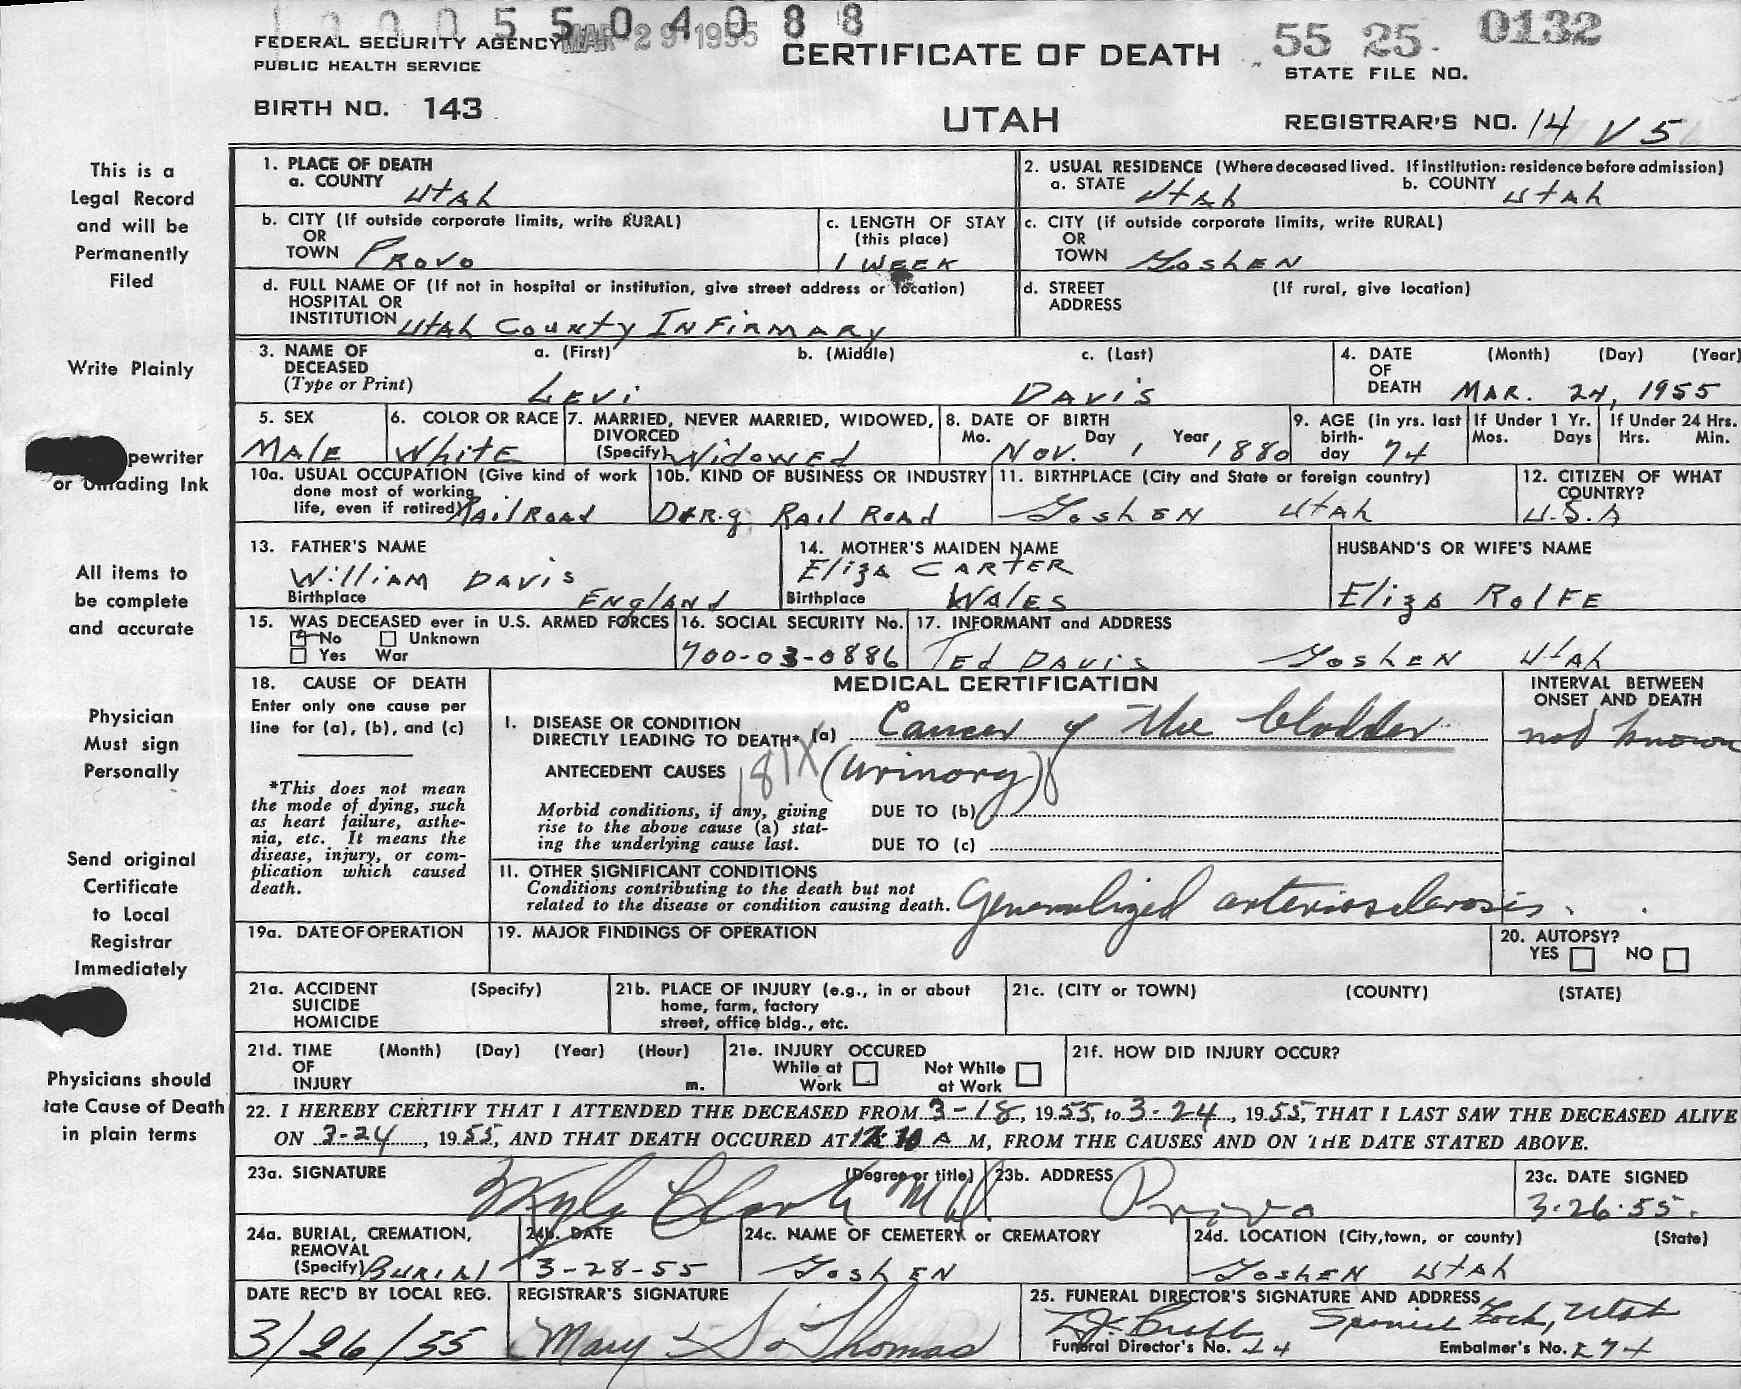 1000550 4088
MAR 29 1955
FEDERAL SECURITY AGENCY
PUBLIC HEALTH SERVICE
CERTIFICATE OF DEATH
55 25 0132
STATE FILE NO.
BIRTH NO. 143
UTAH
REGISTRAR'S NO. 14 V 5
This is a
Legal Record
and will be
Permanently
Filed
Write Plainly
pewriter
or Unfading Ink
All items to
be complete
and accurate
Physician
Must sign
Personally
Send original
Certificate
to Local
Registrar
Immediately
Physicians should
tate Cause of Death
in plain terms
1. PLACE OF DEATH
a. COUNTY Utah
2. USUAL RESIDENCE (Where deceased lived. If institution: residence before admission)
a. STATE Utah b. COUNTY Utah
b. CITY (If outside corporate limits, write RURAL)
OR
TOWN Provo
c. LENGTH OF STAY
(this place)
1 WEEK
c. CITY (If outside corporate limits, write RURAL)
OR
TOWN Goshen
d. FULL NAME OF (If not in hospital or institution, give street address or location)
HOSPITAL OR
INSTITUTION Utah County Infirmary
d. STREET (If rural, give location)
ADDRESS
3. NAME OF a. (First) b. (Middle) c. (Last)
DECEASED
(Type or Print) Levi Davis
4. DATE (Month) (Day) (Year)
OF
DEATH Mar. 24, 1955
5. SEX
Male
6. COLOR OR RACE
White
7. MARRIED, NEVER MARRIED, WIDOWED,
DIVORCED
(Specify) Widowed
8. DATE OF BIRTH
Mo. Day Year
Nov. 1 1880
9. AGE (In yrs. last
birth-
day 74
If Under 1 Yr.
Mos. Days
If Under 24 Hrs.
Hrs. Min.
10a. USUAL OCCUPATION (Give kind of work
done most of working
life, even if retired) Railroad
10b. KIND OF BUSINESS OR INDUSTRY
D&R.g. Rail Road
11. BIRTHPLACE (City and State or foreign country)
Goshen Utah
12. CITIZEN OF WHAT
COUNTRY?
U.S.A
13. FATHER'S NAME
William Davis
Birthplace England
14. MOTHER'S MAIDEN NAME
Eliza Carter
Birthplace Wales
HUSBAND'S OR WIFE'S NAME
Eliza Rolfe
15. WAS DECEASED ever in U.S. ARMED FORCES
No Unknown
Yes War
16. SOCIAL SECURITY No.
700-03-0886
17. INFORMANT and ADDRESS
Ted Davis Goshen Utah
18. CAUSE OF DEATH
Enter only one cause per
line for (a), (b), and (c)
*This does not mean
the mode of dying, such
as heart failure, asthe-
nia, etc. It means the
disease, injury, or com-
plication which caused
death.
MEDICAL CERTIFICATION
INTERVAL BETWEEN
ONSET AND DEATH
I. DISEASE OR CONDITION
DIRECTLY LEADING TO DEATH* (a) Cancer of the bladder
not known
ANTECEDENT CAUSES 181X (urinary)
Morbid conditions, if any, giving
rise to the above cause (a) stat-
ing the underlying cause last.
DUE TO (b)
DUE TO (c)
II. OTHER SIGNIFICANT CONDITIONS
Conditions contributing to the death but not
related to the disease or condition causing death. Generalized arteriosclerosis.
19a. DATE OF OPERATION
19. MAJOR FINDINGS OF OPERATION
20. AUTOPSY?
YES NO
21a. ACCIDENT (Specify)
SUICIDE
HOMICIDE
21b. PLACE OF INJURY (e.g., in or about
home, farm, factory
street, office bldg., etc.
21c. (CITY or TOWN) (COUNTY) (STATE)
21d. TIME (Month) (Day) (Year) (Hour)
OF
INJURY m.
21e. INJURY OCCURED
While at Not While
Work at Work
21f. HOW DID INJURY OCCUR?
22. I HEREBY CERTIFY THAT I ATTENDED THE DECEASED FROM 3-18, 1955, to 3-24, 1955, THAT I LAST SAW THE DECEASED ALIVE
ON 3-24, 1955, AND THAT DEATH OCCURED AT A M, FROM THE CAUSES AND ON THE DATE STATED ABOVE.
23a. SIGNATURE (Degree or title)
Clark MD
23b. ADDRESS
Provo
23c. DATE SIGNED
3-26-55.
24a. BURIAL, CREMATION,
REMOVAL
(Specify) Burial
24b. DATE
3-28-55
24c. NAME OF CEMETERY or CREMATORY
Goshen
24d. LOCATION (City, town, or county) (State)
Goshen Utah
DATE REC'D BY LOCAL REG.
3/26/55
REGISTRAR'S SIGNATURE
Mary Thomas
25. FUNERAL DIRECTOR'S SIGNATURE AND ADDRESS
Spanish Fork, Utah
Funeral Director's No. 24
Embalmer's No. E74